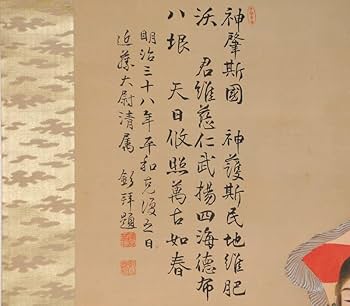 神肇斯國　神護斯民地維肥
沃　君維慈仁武揚四海德布
八垠　天日攸照萬古如春
明治三十八年平和克復之日
近藤大尉清属　拜題